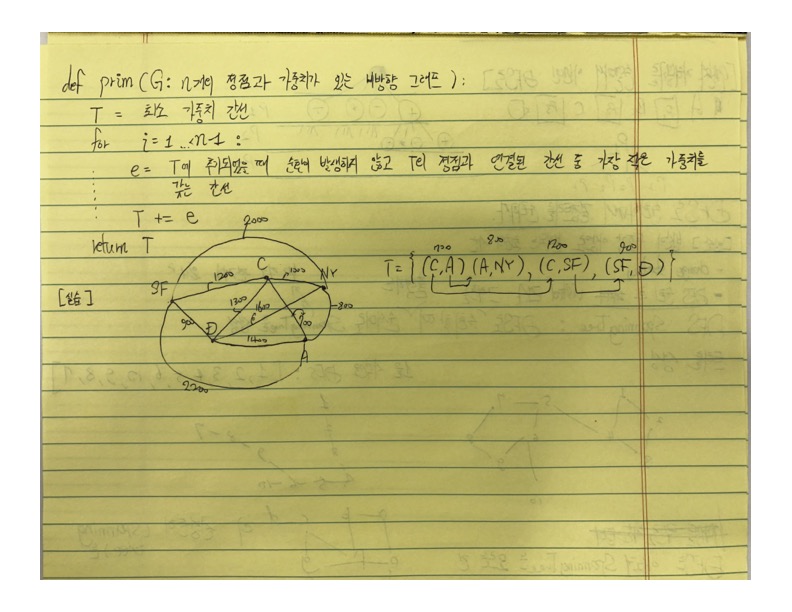 def prim(G: n개의 정점과 가중치가 있는 비방향 그래프):
T = 최소 가중치 간선
for i=1...n-1:
e= T에 추가되었을 때 순환이 발생하지 않고 T의 정점과 연결된 간선 중 가장 작은 가중치를
갖는 간선
T += e
return T
2000
700 800 1200 900
T={(C,A)(A,NY),(C,SF),(SF,D)}
[실습]
SF 1200 C 1000 NY
1300 1600 800
900 D 700
1400 A
2200